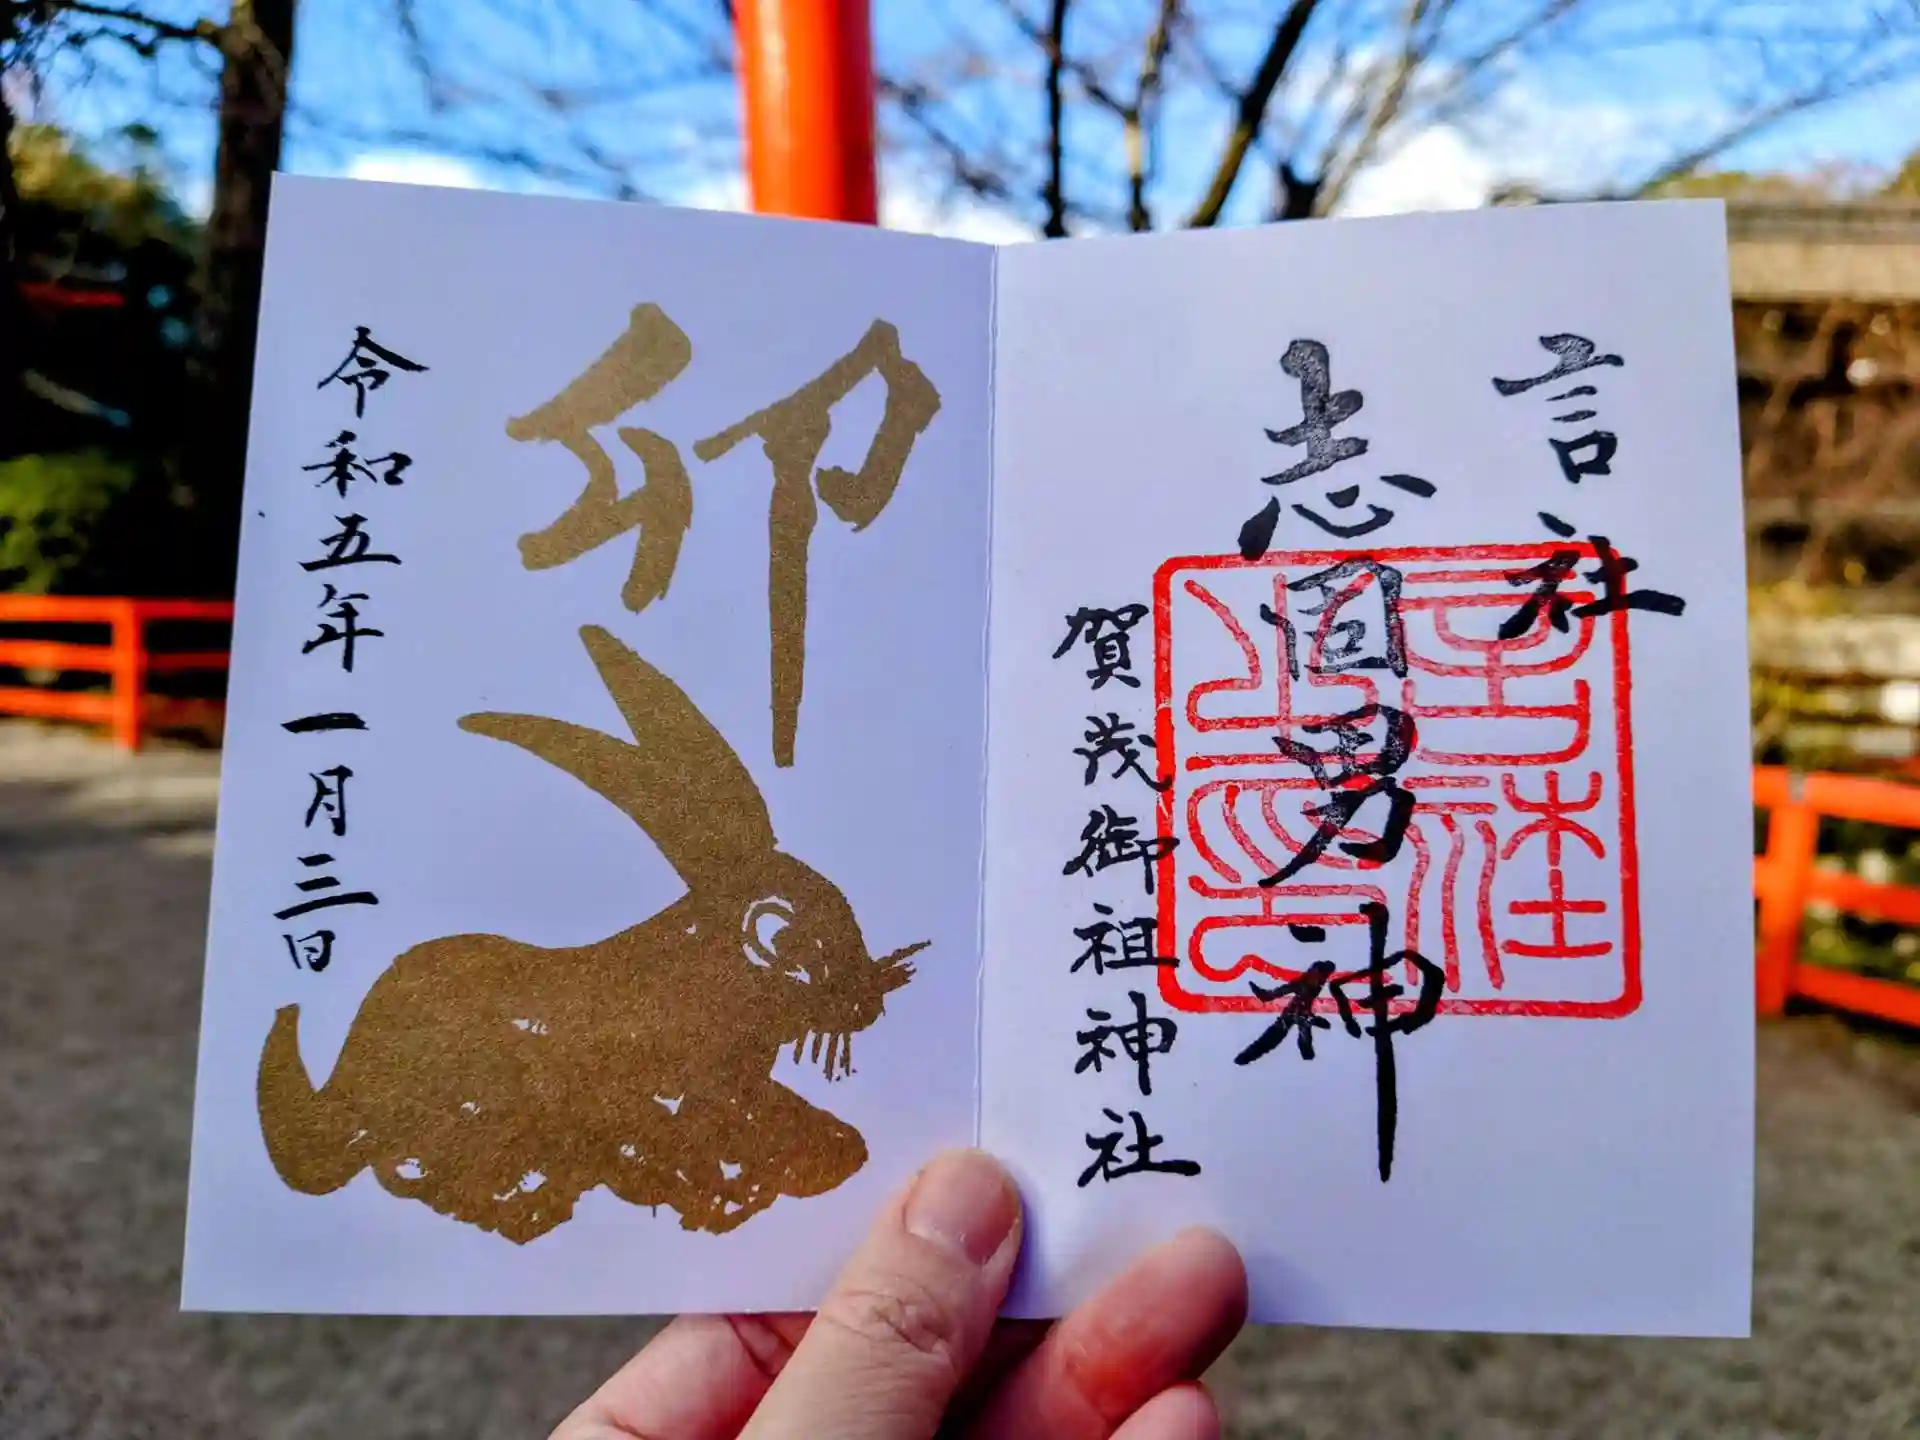 言社
志固男神
賀茂御祖神社
卯
令和五年一月三日
言社